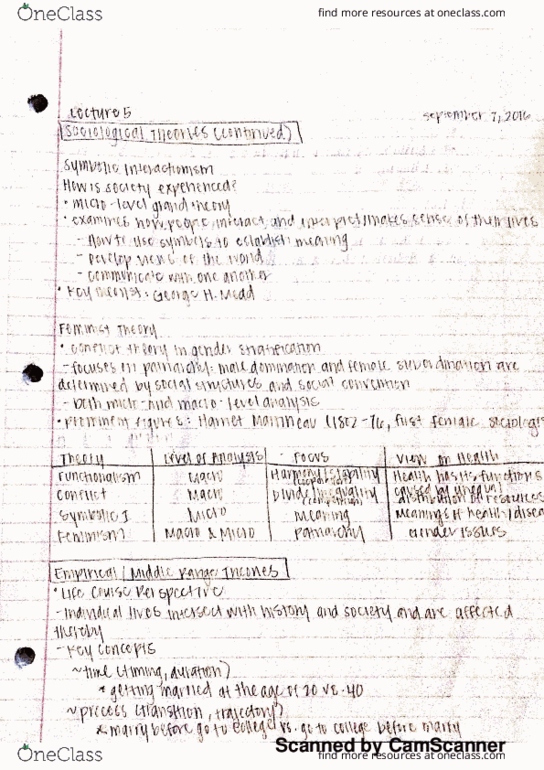 OneClass
find more resources at oneclass.com
Lecture 5
September 7, 2016
Sociological Theories (continued)
Symbolic Interactionism
How is society experienced?
• micro-level grand theory
• examines how people interact and interpret/makes sense of their lives
- How to use symbols to establish meaning
- develop views of the world
- communicate with one another
• Key theorist: George H. Mead
Feminist Theory
• conflict theory in gender stratification
- focuses on patriarchy: male domination and female subordination are
determined by social structures and social convention
- both micro- and macro-level analysis
• prominent figures: Harriet Martineau (1802-76, first female sociologis
Theory Level of Analysis Focus View on Health
Functionalism Macro Harmony/stability (cooperation) Health has its functions
Conflict Macro Divide/inequality (competition) caused by unequal distribution of resources
Symbolic I Micro Meaning Meanings of health/disea
Feminism Macro & Micro Patriarchy Gender issues
Empirical/Middle Range Theories
• Life Course Perspective
- Individual lives intersect with history and society and are affected
thereby
- Key concepts
~ time (timing, duration)
* getting married at the age of 20 vs. 40
~ process (transition, trajectory)
* marry before go to college vs. go to college before marry
Scanned by CamScanner
OneClass
find more resources at oneclass.com